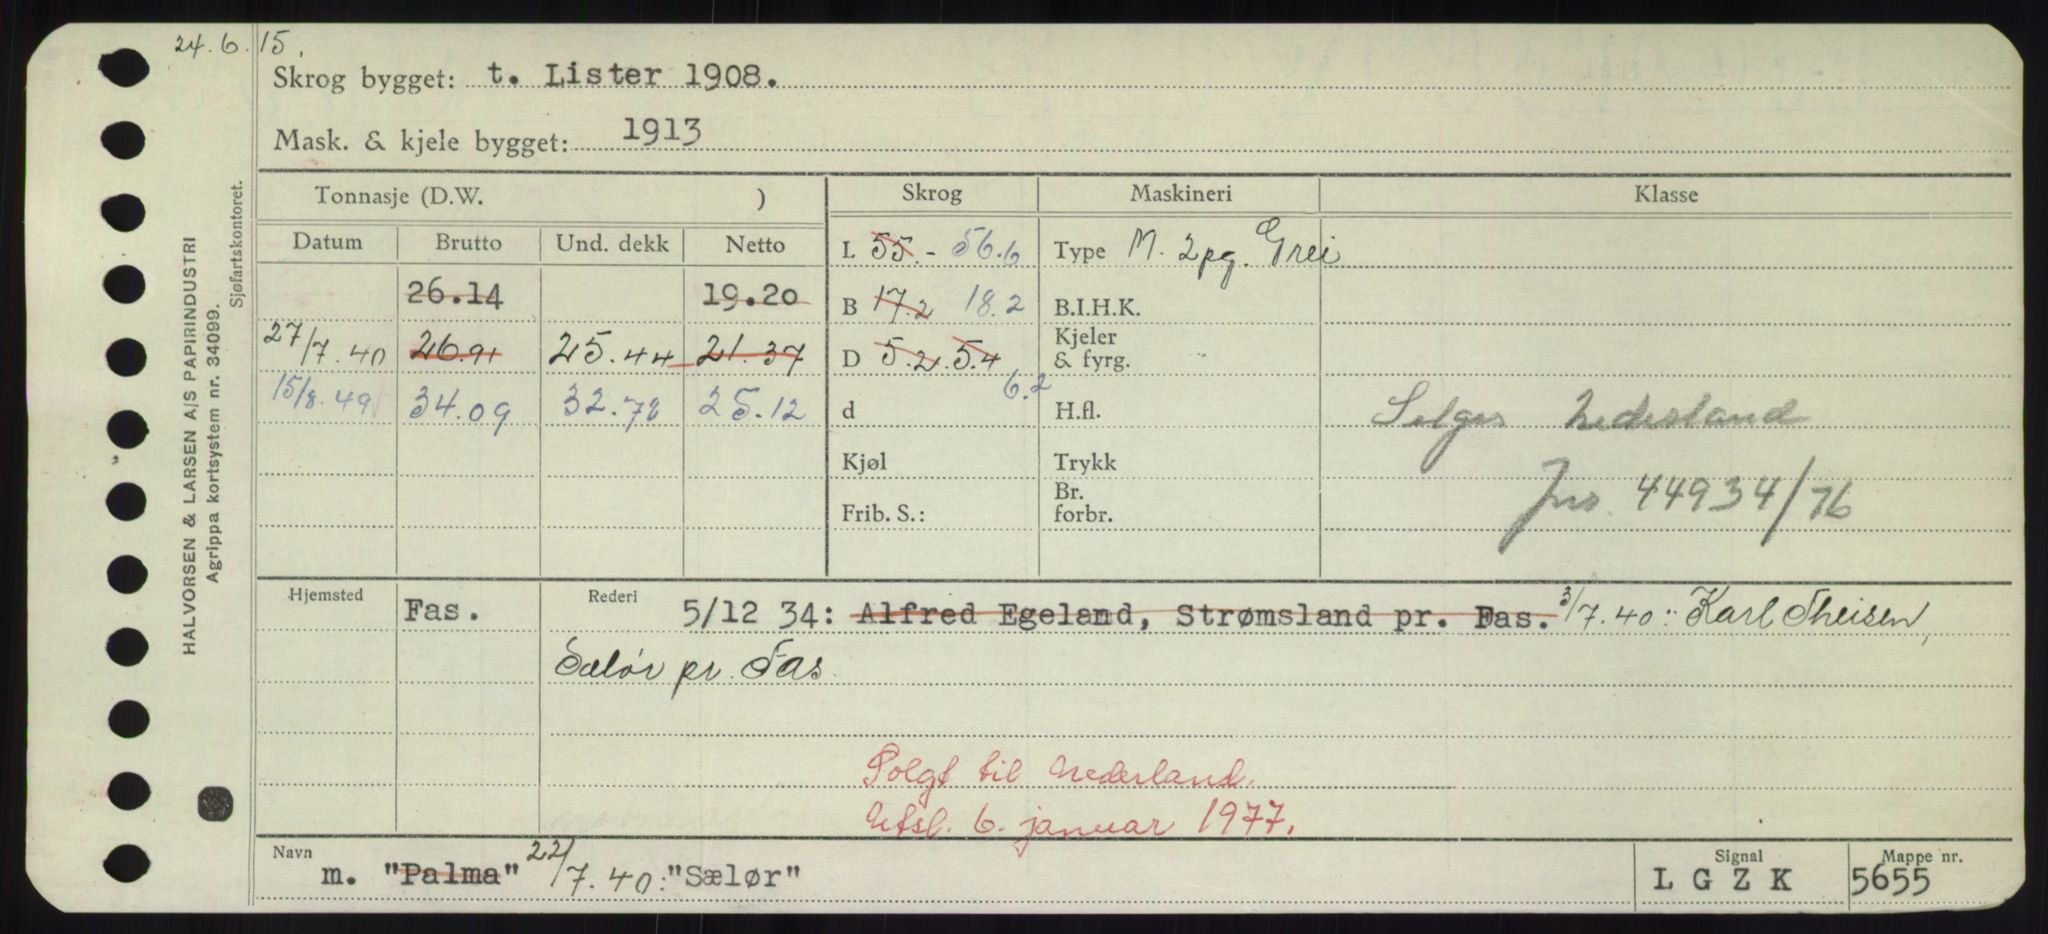 24.6.15.
Skrog bygget: t. Lister 1908.
Mask. & kjele bygget: 1913
HALVORSEN & LARSEN A/S PAPIRINDUSTRI
Agrippa kortsystem nr. 34099.
Sjøfartskontoret.
Tonnasje (D.W. ) Skrog Maskineri Klasse
Datum Brutto Und. dekk Netto
L 55.- 56.6 Type M. 2pg. Grei
26.14 19.20
B 17.2 18.2 B.I.H.K.
27/7.40 26.91 25.44 21.37
D 5.2 5.4 Kjeler & fyrg.
15/8.49 34.09 32.78 25.12
6.2
d H.fl.
Selges Nederland
Kjøl Trykk
Jnr. 44934/76
Frib. S.: Br. forbr.
Hjemsted Fas. Rederi 5/12 34: Alfred Egeland, Strømsland pr. Fas. 3/7.40: Karl Theisen,
Sælør pr. Fas.
Solgt til Nederland.
Utsl. 6. januar 1977.
Navn m. "Palma" 22/7.40: "Sælør" Signal L G Z K Mappe nr. 5655